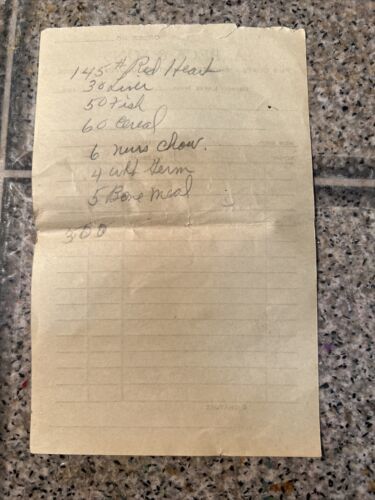 145 # Red Heart
30 Liver
50 Fish
60 Cereal
6 nurs chow.
4 wht Germ
5 Bone meal
300